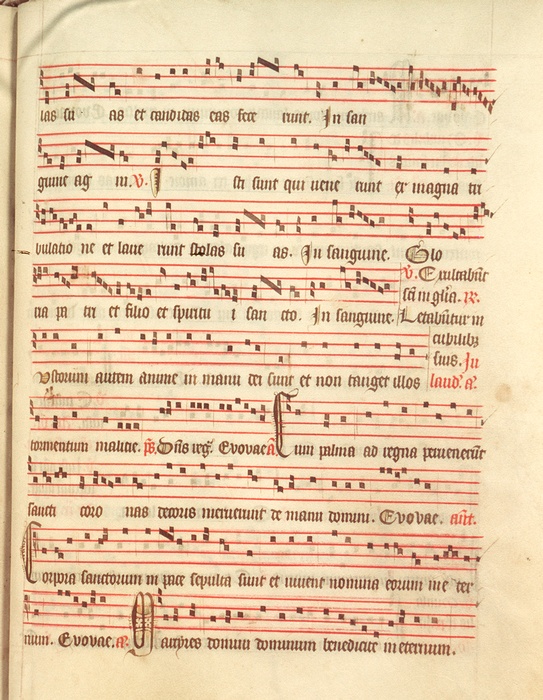 ias su as et candidas eas fece runt. In san
guine ag ni. V. Isti sunt qui vene runt ex magna tri
bulatio ne et lave runt stolas su as. In sanguine. Glo
ria pa tri et filio et spiritu i san cto. In sanguine.
V. Exultabūt
sci in glīa. R.
Letabūtur in
cubilibꝫ
suis. In
laud. a.
Iustorum autem anime in manu dei sunt et non tanget illos
tormentum malitie. ps. Dn̄s reg. Evovae a. Cum palma ad regna pervenerūt
sancti coro nas decoris meruerunt de manu domini. Evovae. ant.
Corpora sanctorum in pace sepulta sunt et vivent nomina eorum in e ter
num. Evovae. a. Martyres domini dominum benedicite in eternum.